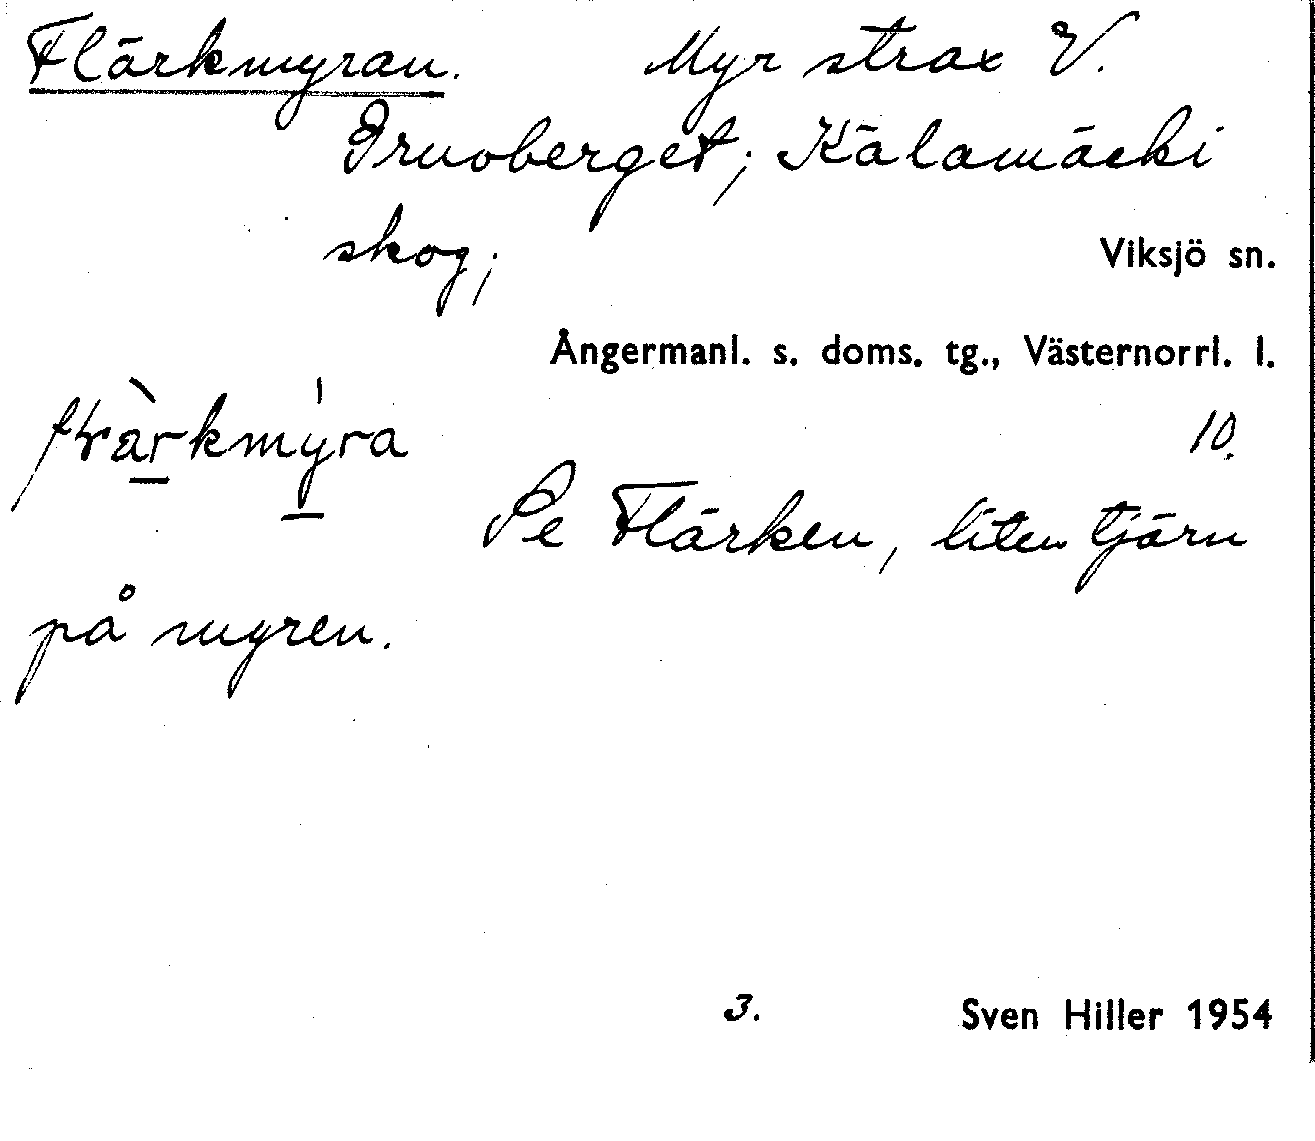 Flärkmyran. Myr strax V.
Gruvberget; Kälamäcki
skog; Viksjö sn.
Ångermanl. s. doms. tg., Västernorrl. l.
10.
Se Flärken, liten tjärn
på myren.
3. Sven Hiller 1954